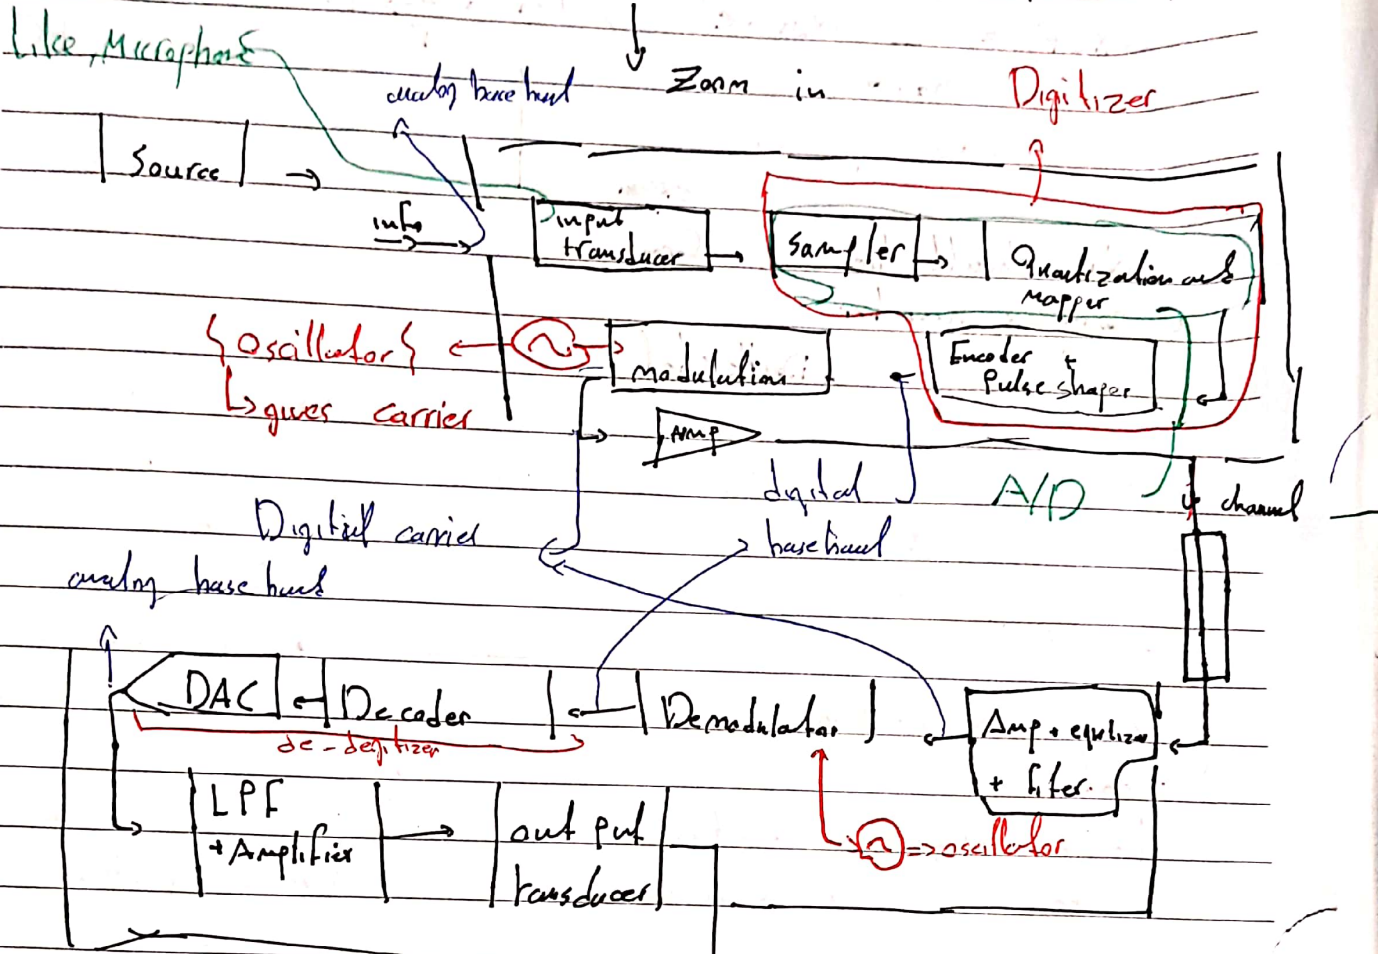 Like, Microphone
Zoom in
analog base band
Digitizer
Source
info
input
transducer
Sampler
Quantization and
mapper
{ Oscillator {
gives carrier
modulation
Encoder +
Pulse shaper
AMP
digital
base band
A/D
channel
Digital carrier
analog base band
DAC
Decoder
Demodulator
Amp + equlizer
+ filter.
de-degitizer
LPF
+ Amplifier
out put
transducer
=> oscillator